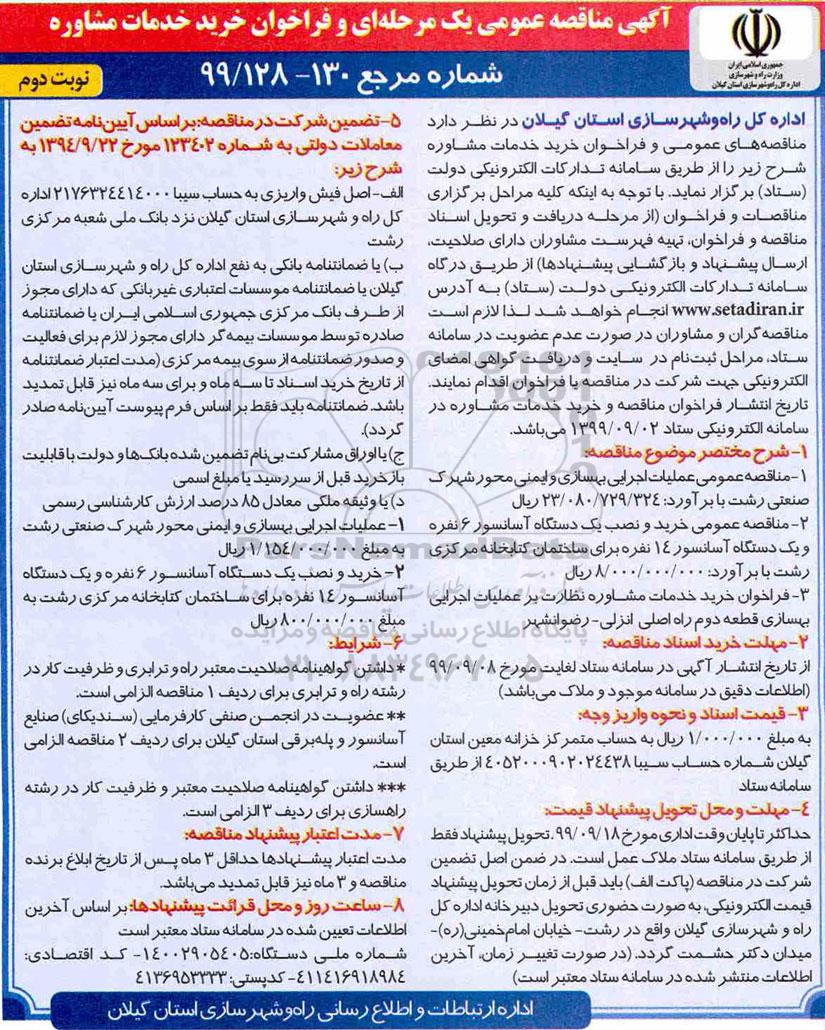 آگهی مناقصه عمومی یک مرحله‌ای و فراخوان خرید خدمات مشاوره
جمهوری اسلامی ایران
وزارت راه و شهرسازی
اداره کل راه و شهرسازی استان گیلان
شماره مرجع ۱۳۰- ۹۹/۱۲۸
نوبت دوم
اداره کل راه‌وشهرسازی استان گیلان در نظر دارد
مناقصه‌های عمومی و فراخوان خرید خدمات مشاوره
شرح زیر را از طریق سامانه تدارکات الکترونیکی دولت
(ستاد) برگزار نماید. با توجه به اینکه کلیه مراحل برگزاری
مناقصات و فراخوان (از مرحله دریافت و تحویل اسناد
مناقصه و فراخوان، تهیه فهرست مشاوران دارای صلاحیت،
ارسال پیشنهاد و بازگشایی پیشنهادها) از طریق درگاه
سامانه تدارکات الکترونیکی دولت (ستاد) به آدرس
www.setadiran.ir انجام خواهد شد لذا لازم است
مناقصه‌گران و مشاوران در صورت عدم عضویت در سامانه
ستاد، مراحل ثبت‌نام در سایت و دریافت گواهی امضای
الکترونیکی جهت شرکت در مناقصه یا فراخوان اقدام نمایند.
تاریخ انتشار فراخوان مناقصه و خرید خدمات مشاوره در
سامانه الکترونیکی ستاد ۱۳۹۹/۰۹/۰۲ می‌باشد.
۱- شرح مختصر موضوع مناقصه:
۱-مناقصه عمومی عملیات اجرایی بهسازی و ایمنی محور شهرک
صنعتی رشت با برآورد: ۲۳/۰۸۰/۷۲۹/۳۲۴ ریال
۲- مناقصه عمومی خرید و نصب یک دستگاه آسانسور ۶ نفره
و یک دستگاه آسانسور ۱۴ نفره برای ساختمان کتابخانه مرکزی
رشت با برآورد: ۸/۰۰۰/۰۰۰/۰۰۰ ریال
۳- فراخوان خرید خدمات مشاوره نظارت بر عملیات اجرایی
بهسازی قطعه دوم راه اصلی انزلی- رضوانشهر
۲- مهلت خرید اسناد مناقصه:
از تاریخ انتشار آگهی در سامانه ستاد لغایت مورخ ۹۹/۰۹/۰۸
(اطلاعات دقیق در سامانه موجود و ملاک می‌باشد)
۳- قیمت اسناد و نحوه واریز وجه:
به مبلغ ۱/۰۰۰/۰۰۰ ریال به حساب متمرکز خزانه معین استان
گیلان شماره حساب سیبا ۴۰۵۲۰۰۰۹۰۲۰۲۴۴۳۸ از طریق
سامانه ستاد
۴- مهلت و محل تحویل پیشنهاد قیمت:
حداکثر تا پایان وقت اداری مورخ ۹۹/۰۹/۱۸. تحویل پیشنهاد فقط
از طریق سامانه ستاد ملاک عمل است. در ضمن اصل تضمین
شرکت در مناقصه (پاکت الف) باید قبل از زمان تحویل پیشنهاد
قیمت الکترونیکی، به صورت حضوری تحویل دبیرخانه اداره کل
راه و شهرسازی گیلان واقع در رشت- خیابان امام‌خمینی(ره)-
میدان دکتر حشمت گردد. (در صورت تغییر زمان، آخرین
اطلاعات منتشر شده در سامانه ستاد معتبر است)
۵- تضمین شرکت در مناقصه: براساس آیین‌نامه تضمین
معاملات دولتی به شماره ۱۲۳۴۰۲ مورخ ۱۳۹۴/۹/۲۲ به
شرح زیر:
الف- اصل فیش واریزی به حساب سیبا ۲۱۷۶۳۲۴۴۱۴۰۰۰ اداره
کل راه و شهرسازی استان گیلان نزد بانک ملی شعبه مرکزی
رشت
ب) یا ضمانتنامه بانکی به نفع اداره کل راه و شهرسازی استان
گیلان یا ضمانتنامه موسسات اعتباری غیربانکی که دارای مجوز
از طرف بانک مرکزی جمهوری اسلامی ایران یا ضمانتنامه
صادره توسط موسسات بیمه‌گر دارای مجوز لازم برای فعالیت
و صدور ضمانتنامه از سوی بیمه مرکزی (مدت اعتبار ضمانتنامه
از تاریخ خرید اسناد تا سه ماه و برای سه ماه نیز قابل تمدید
باشد. ضمانتنامه باید فقط بر اساس فرم پیوست آیین‌نامه صادر
گردد).
ج) یا اوراق مشارکت بی‌نام تضمین شده بانک‌ها و دولت با قابلیت
بازخرید قبل از سررسید یا مبلغ اسمی
د) یا وثیقه ملکی معادل ۸۵ درصد ارزش کارشناسی رسمی
۱- عملیات اجرایی بهسازی و ایمنی محور شهرک صنعتی رشت
به مبلغ ۱/۱۵۴/۰۰۰/۰۰۰ ریال
۲- خرید و نصب یک دستگاه آسانسور ۶ نفره و یک دستگاه
آسانسور ۱۴ نفره برای ساختمان کتابخانه مرکزی رشت به
مبلغ ۸۰۰/۰۰۰/۰۰۰ ریال
۶- شرایط:
* داشتن گواهینامه صلاحیت معتبر راه و ترابری و ظرفیت کار در
رشته راه و ترابری برای ردیف ۱ مناقصه الزامی است.
** عضویت در انجمن صنفی کارفرمایی (سندیکای) صنایع
آسانسور و پله‌برقی استان گیلان برای ردیف ۲ مناقصه الزامی
است.
*** داشتن گواهینامه صلاحیت معتبر و ظرفیت کار در رشته
راهسازی برای ردیف ۳ الزامی است.
۷- مدت اعتبار پیشنهاد مناقصه:
مدت اعتبار پیشنهادها حداقل ۳ ماه پس از تاریخ ابلاغ برنده
مناقصه و ۳ ماه نیز قابل تمدید می‌باشد.
۸- ساعت روز و محل قرائت پیشنهادها: بر اساس آخرین
اطلاعات تعیین شده در سامانه ستاد معتبر است
شماره ملی دستگاه:۱۴۰۰۲۹۰۵۴۰۵- کد اقتصادی:
۴۱۱۴۱۶۹۱۸۹۸۴- کدپستی: ۴۱۳۶۹۵۳۳۳۳
اداره ارتباطات و اطلاع رسانی راه‌وشهرسازی استان گیلان
ParsNamadData
پایگاه اطلاع رسانی مناقصه و مزایده
۰۲۱-۸۸۳۴۹۶۷۰-۵